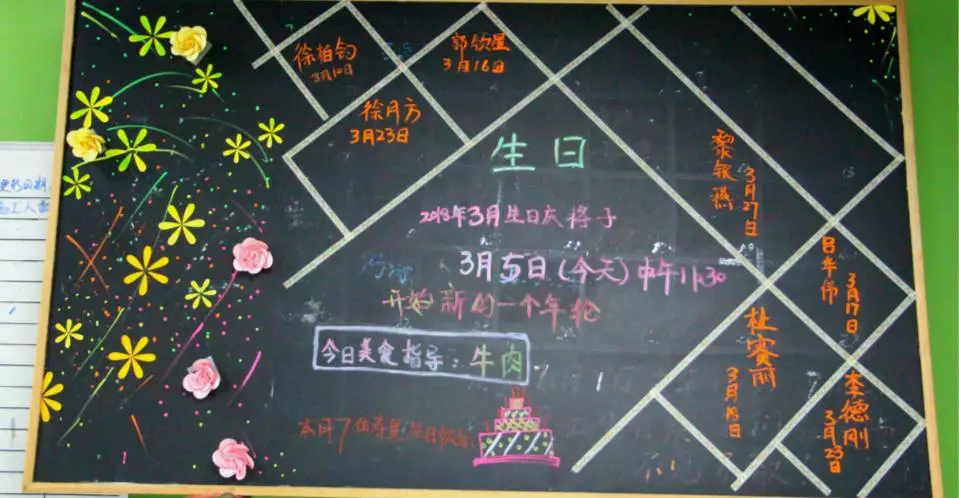 徐柏钧
3月10日
郭钦星
3月16日
徐月方
3月23日
生日
2018年3月生日庆将于
3月5日(今天)中午11:30
开始新的一个年轮
今日美食指导:牛肉
本月7位寿星,生日快乐!
黎银燕
3月27日
吕华伟
3月17日
杜赛丽
李德刚
3月23日